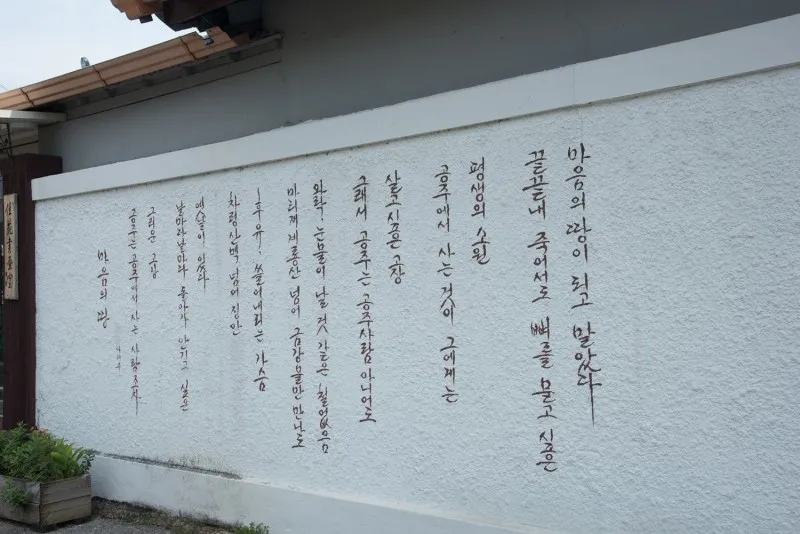 마음의 땅
나태주
공주는 공주에서 사는 사람조차
그리운 고장
날마다 날마다 돌아가 안기고 싶은
있다
차령산맥 넘어 정안
후유! 쓸어내리는 가슴
마티재 계룡산 넘어 금강물만 만나도
와락! 눈물이 날 것 같은 철없음
그래서 공주는 공주사람 아니어도
살고 싶은 고장
공주에서 사는 것이 그에게는
평생의 소원
끝끝내 죽어서도 뼈를 묻고 싶은
마음의 땅이 되고 말았다